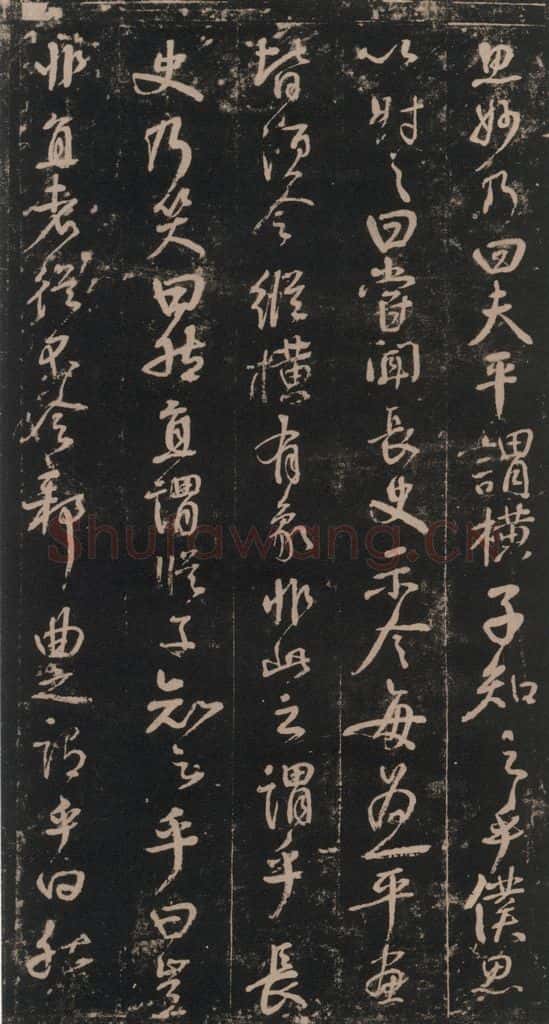 思妙乃曰夫平謂橫子知之乎僕思
以對之曰嘗聞長史示令每為一平畫
皆須令縱橫有象非此之謂乎長
史乃笑曰然直謂縱子知之乎曰豈
非直者從不令邪曲之謂乎曰然
Shufawang.cn